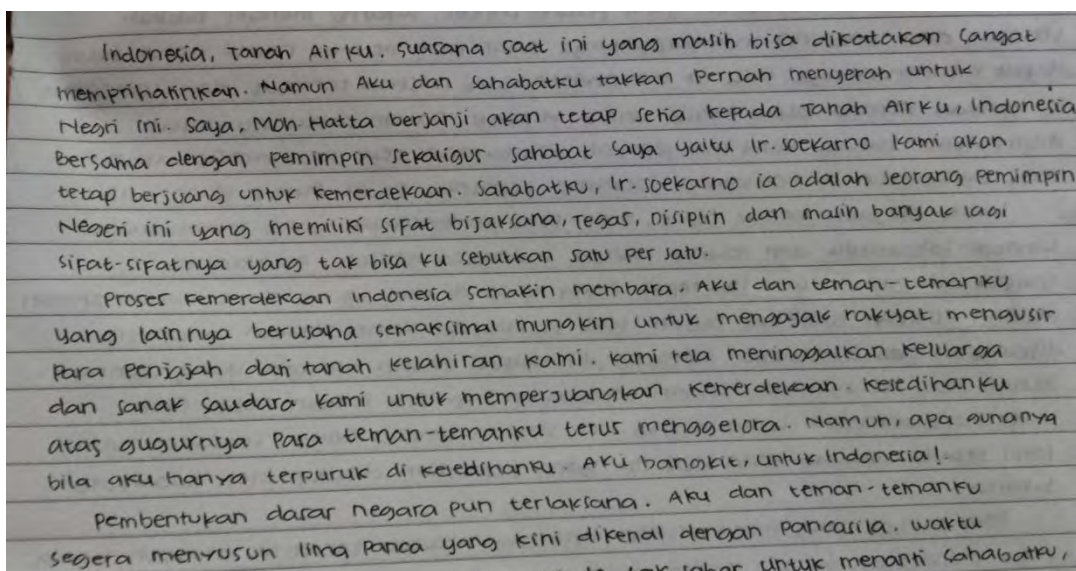 Indonesia, Tanah Airku. Suasana saat ini yang masih bisa dikatakan sangat
memprihatinkan. Namun Aku dan sahabatku takkan pernah menyerah untuk
Negri ini. Saya, Moh Hatta berjanji akan tetap setia kepada Tanah Airku, Indonesia
Bersama dengan pemimpin sekaligus sahabat saya yaitu Ir. Soekarno kami akan
tetap berjuang untuk kemerdekaan. Sahabatku, Ir. Soekarno ia adalah seorang pemimpin
Negeri ini yang memiliki sifat bijaksana, Tegas, Disiplin dan masih banyak lagi
sifat-sifatnya yang tak bisa ku sebutkan satu per satu.
Proses kemerdekaan Indonesia semakin membara. Aku dan teman-temanku
yang lainnya berusaha semaksimal mungkin untuk mengajak rakyat mengusir
Para Penjajah dari tanah kelahiran kami. Kami rela meninggalkan keluarga
dan sanak saudara kami untuk memperjuangkan kemerdekaan. Kesedihanku
atas gugurnya para teman-temanku terus menggelora. Namun, apa gunanya
bila aku hanya terpuruk di kesedihanku. Aku bangkit, untuk Indonesia!
Pembentukan dasar negara pun terlaksana. Aku dan teman-temanku
segera menyusun lima panca yang kini dikenal dengan pancasila. Waktu
untuk menanti sahabatku,